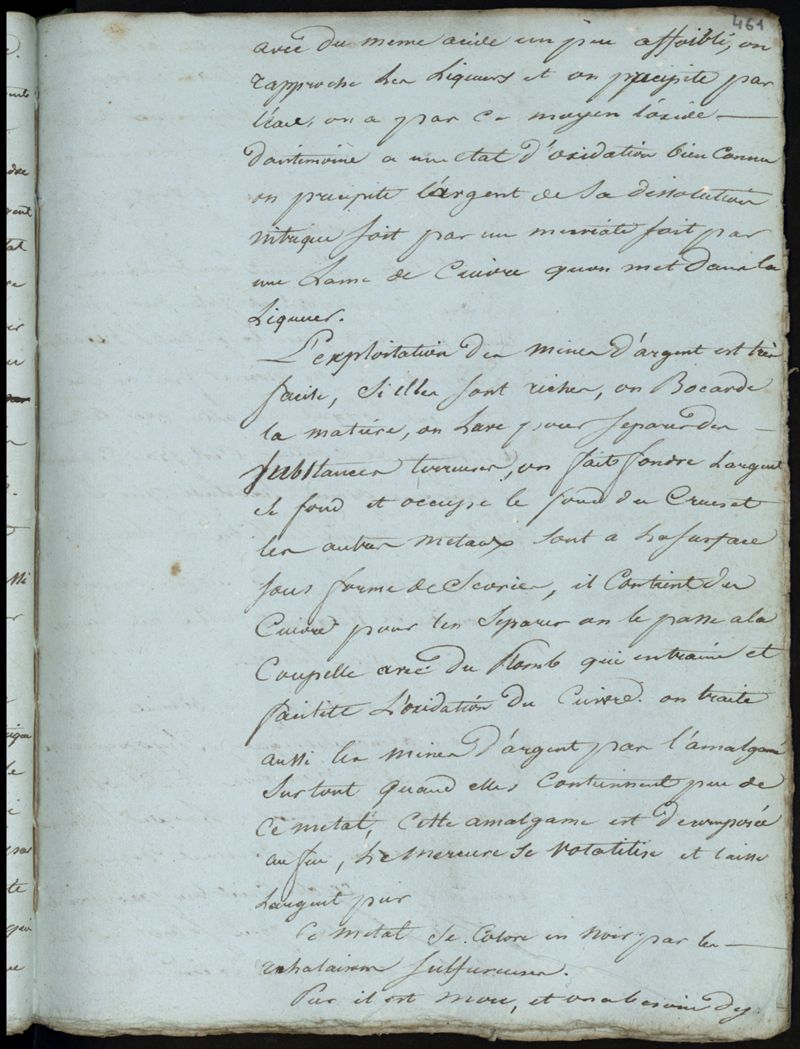 461
avec du meme acide un peu affoibli, on
rapproche les liqueurs et on precipite par
l'eau, on a par ce moyen l'oxide
d'antimoine a un etat d'oxidation bien connu
on precipite l'argent de sa dissolution
nitrique soit par un muriate soit par
une Lame de Cuivre quon met dans la
Liqueur.
L'exploitation des mines d'argent est très
facile, si elles sont riches, on Bocarde
la matière, on Lave pour separer des
substances terreuses, on fait fondre Largent
se fond et occupe le fond du Creuset
les autres metaux sont a la surface
sous forme de Scories, il Contient du
Cuivre pour les Separer on le passe a la
Coupelle avec du Plomb qui entraine et
facilite L'oxidation du Cuivre. on traite
aussi les mines d'argent par l'amalgame
surtout quand elles Contiennent peu de
ce metal, Cette amalgame est decomposée
au feu, le mercure se volatilise et laisse
Largent pur
Ce metal se Colore en noir par les
exhalaisons sulfureuses.
Pur il est mou, et on a besoin d'y